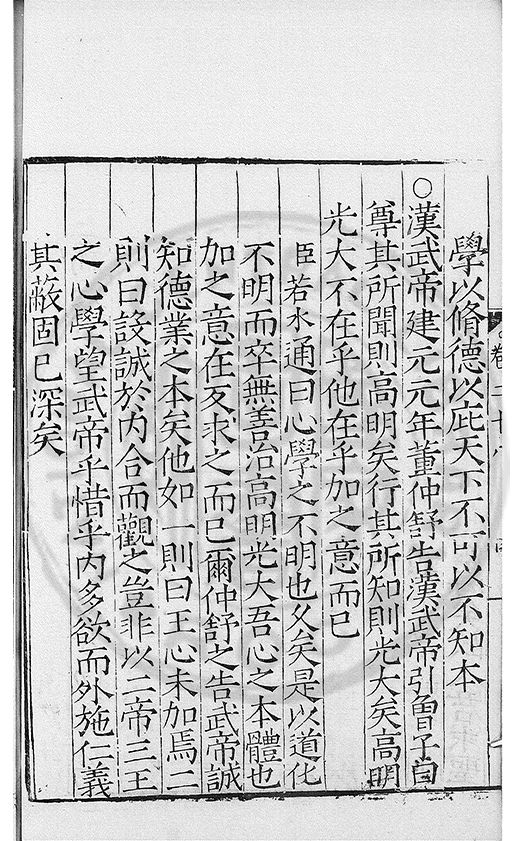 學以脩德以庇天下不可以不知本
○漢武帝建元元年董仲舒告漢武帝引曾子曰
尊其所聞則高明矣行其所知則光大矣高明
光大不在乎他在乎加之意而已
臣若水通曰心學之不明也久矣是以道化
不明而卒無善治高明光大吾心之本體也
加之意在反求之而已爾仲舒之告武帝誠
知德業之本矣他如一則曰王心未加焉二
則曰設誠於内合而觀之豈非以二帝三王
之心學望武帝乎惜乎内多欲而外施仁義
其蔽固已深矣